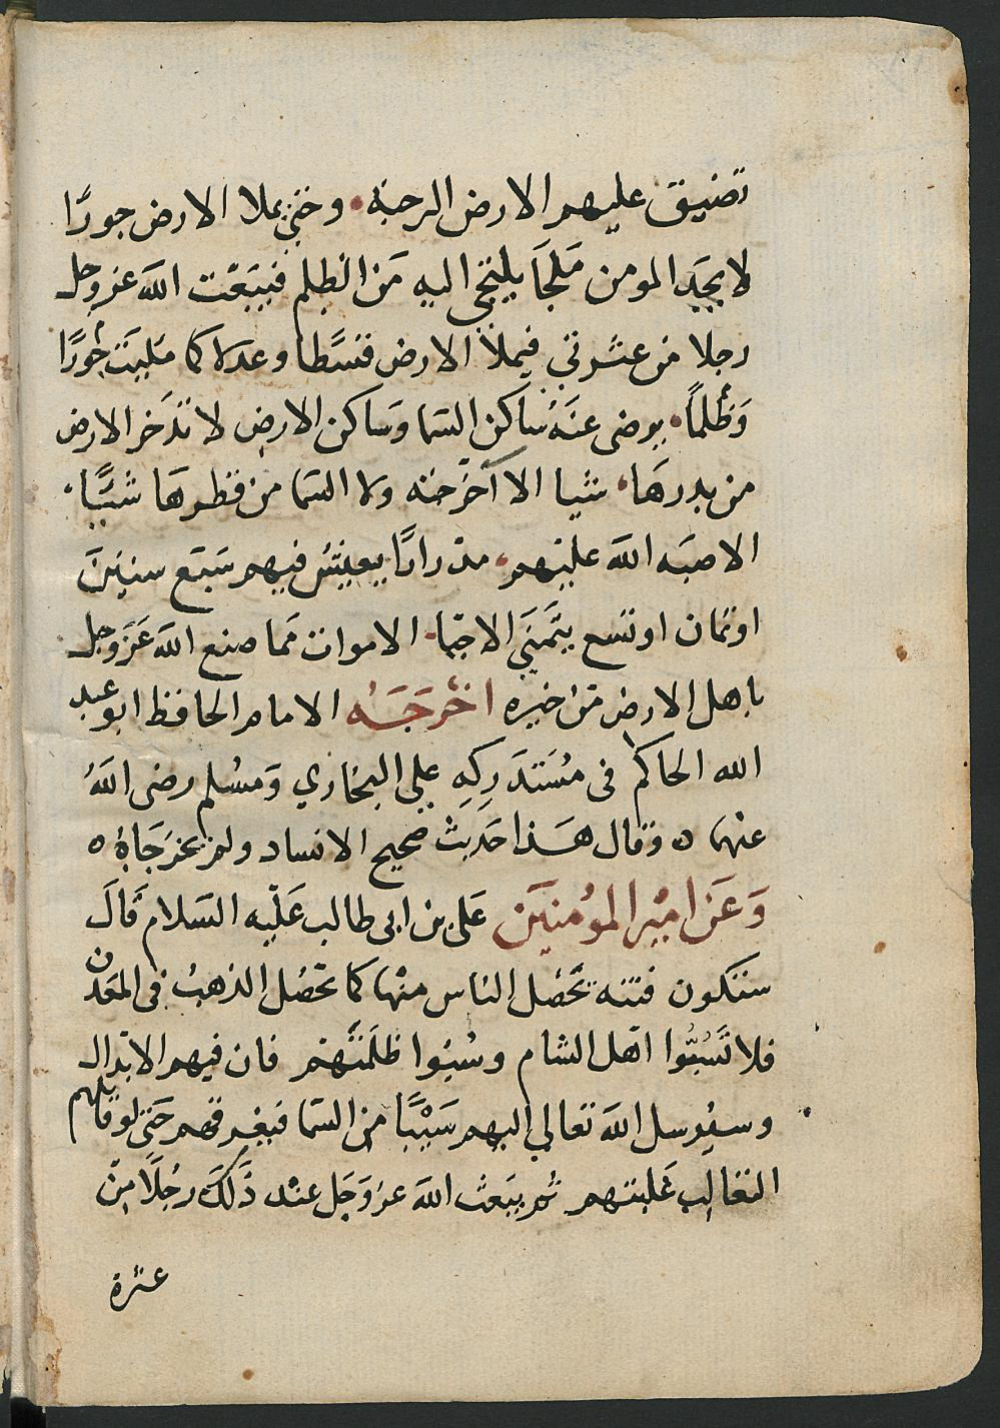 تضيق عليهم الارض الرحبة • وحتى يملا الارض جورًا
لا يجد المومن مَلجَا يلتجى اليه مَن الظلم فيبعَث الله عز وجل
رجلا من عترتي فيملأ الارض قسطًا وعدلا كما مليَت جُورًا
وَظُلمًا • يرضى عنَه ساكن السما وَساكن الارض لا تدَخر الارض
من بدرهَا • شيا الا آخرَجته ولا السما من قطرهَا شيًا
الا صبَه الله عليهم • مدرارًا يعيش فيهم سَبَع سنينَ
او ثمان او تسع يتَمنَي الاحيا • الاموات مَما صنع الله عَز وجل
باهل الارض مَن خيره اخرَجَه الامام الحافظ ابو عبد
الله الحاكم فى مسُتدَركِهِ علي البخاري وَمسُلم رضى اللهُ
عنهما ٥ وقال هَذا حَديث صحيح الاسناد ولم يخرَجَاهُ ٥
وَعَن اميْر المؤمنيَن عَلى بن ابى طالب عَليْه السَلام قَالَ
ستكون فتنه يَحَصُل الناس منْها كما يحَصُل الذهب فى المعَدن
فلا تَسُبُّوا اهَل الشام وسُبوا ظلَمَتَهم فان فيهم الابَدال
وسيُرسل الله تعالي اليهم سَيْبًا مِن السَما فيغرقهم حَتى لو قاتلهم
الثعَالِب غَلبتهم ثم يبَعث الله عز وَجَل عنْد ذَلكَ رجُلًا مِنّ
عترة